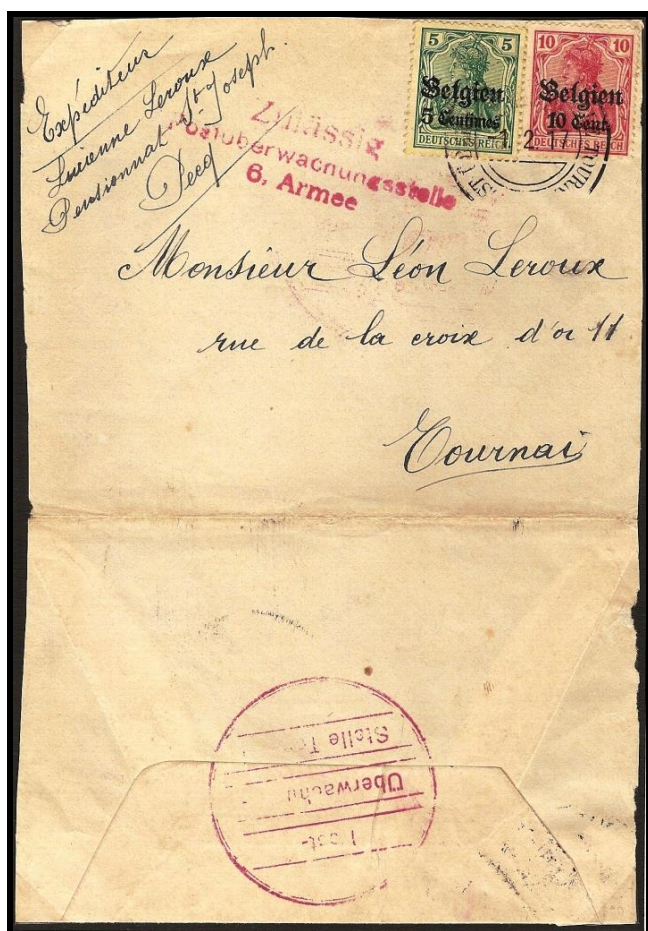 Expéditeur
Lucienne Leroux
Pensionnat St Joseph.
Pecq
5 5
Belgien
5 Centimes
DEUTSCHES REICH
10 10
Belgien
10 Cent.
DEUTSCHES REICH
Zulässig
Postüberwachungsstelle
6. Armee
Monsieur Léon Leroux
rue de la croix d'or 11
Tournai
Post-
Überwachu
Stelle T